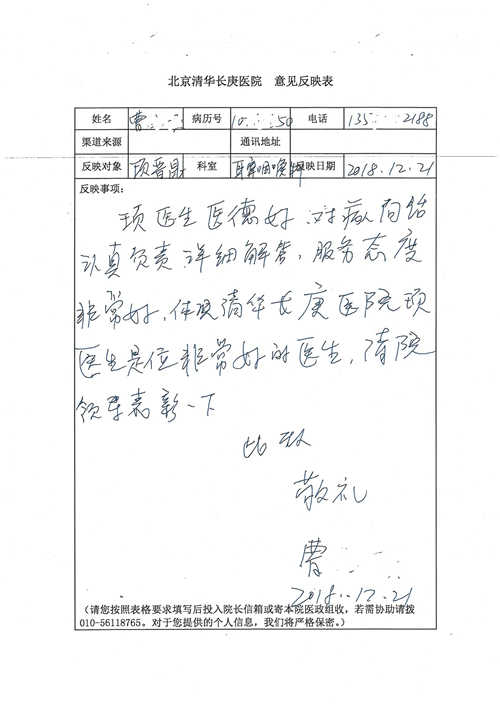 北京清华长庚医院 意见反映表
姓名 曹 病历号 10 50 电话 135 2188
渠道来源 通讯地址
反映对象 顼晋昆 科室 耳鼻咽喉科 反映日期 2018.12.21
反映事项：
顼医生医德好，对病人
认真负责，详细解答，服务态度
非常好，体现清华长庚医院顼
医生是位非常好的医生，请院
领导表彰一下
此致
敬礼
曹
2018.12.21
（请您按照表格要求填写后投入院长信箱或寄本院医政组收，若需协助请拨
010-56118765。对于您提供的个人信息，我们将严格保密。）